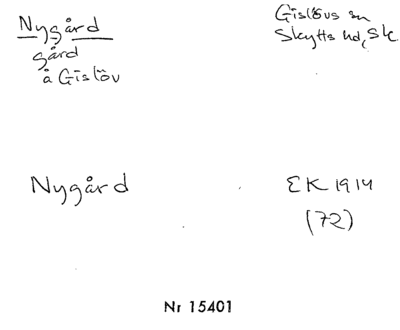 Nygård
gård
å Gislöv
Gislövs sn
Skytts hd, Sk.
Nygård
EK 1914
(72)
Nr 15401